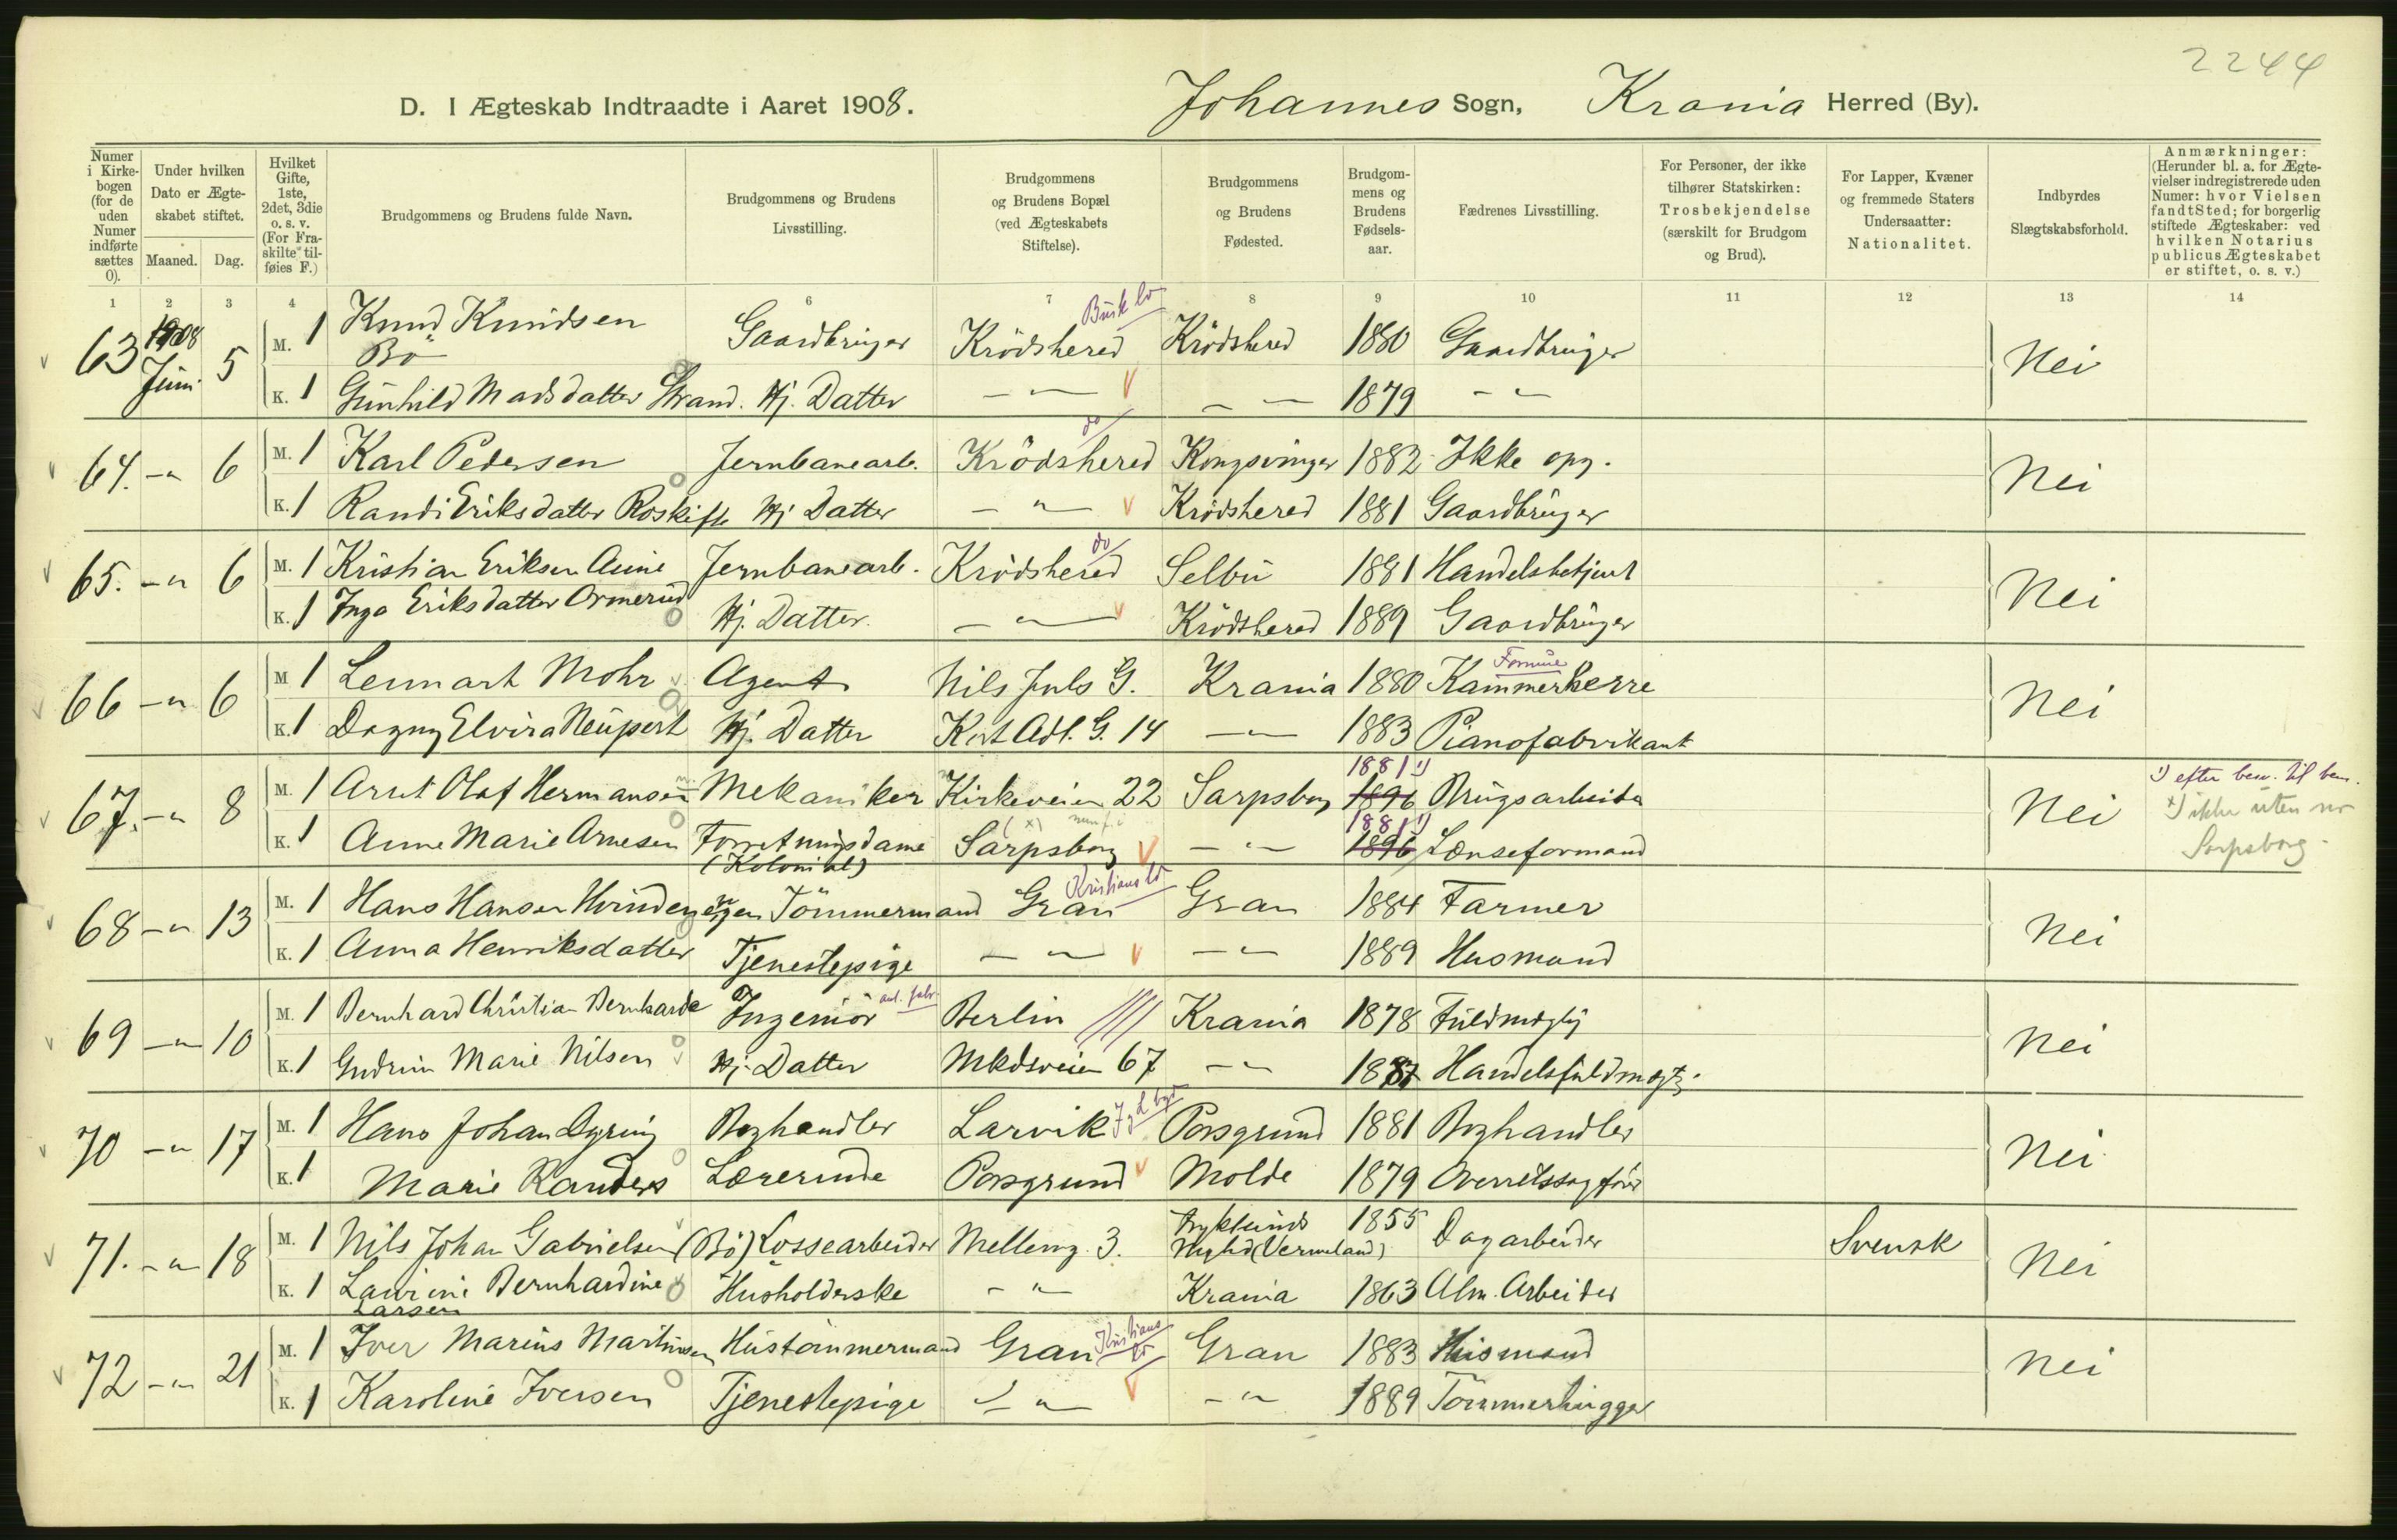 2244
D. I Ægteskab Indtraadte i Aaret 1908. Johannes Sogn, Krania Herred (By).
Numer i Kirkebogen (for de uden Numer indførte sættes 0).
Under hvilken Dato er Ægteskabet stiftet.
Maaned. Dag.
Hvilket Gifte, 1ste, 2det, 3die o. s. v. (For Fraskilte tilføies F.)
Brudgommens og Brudens fulde Navn.
Brudgommens og Brudens Livsstilling.
Brudgommens og Brudens Bopæl (ved Ægteskabets Stiftelse).
Brudgommens og Brudens Fødested.
Brudgommens og Brudens Fødselsaar.
Fædrenes Livsstilling.
For Personer, der ikke tilhører Statskirken: Trosbekjendelse (særskilt for Brudgom og Brud).
For Lapper, Kvæner og fremmede Staters Undersaatter: Nationalitet.
Indbyrdes Slægtskabsforhold.
Anmærkninger: (Herunder bl. a. for Ægtevielser indregistrerede uden Numer: hvor Vielsen fandt Sted; for borgerlig stiftede Ægteskaber: ved hvilken Notarius publicus Ægteskabet er stiftet, o. s. v.)
1 2 3 4 6 7 8 9 10 11 12 13 14
63 1908 Juni 5 M. 1 Knud Knudsen Bö Gaardbruger Krödshered Busk Krödshered 1880 Gaardbruger Nei
K. 1 Gunhild Madsdatter Strand. Hj. Datter — " — — — 1879 — " —
64. — " 6 M. 1 Karl Pedersen Jernbanearb. Krödshered do Kongsvinger 1882 Ikke opg. Nei
K. 1 Randi Eriksdatter Roskifte Hj Datter — " — Krödshered 1881 Gaardbruger
65. — " 6 M. 1 Kristian Eriksen Aune Jernbanearb. Krödshered do Selbu 1881 Handelsbetjent Nei
K. 1 Inga Eriksdatter Ormerud Hj. Datter. — " — Krödshered 1889 Gaardbruger
66 — " 6 M. 1 Lennart Mohr Agent Nils Juls G. Krania 1880 Kammerherre Nei
K. 1 Dagny Elvira Neupert Hj. Datter Kort Adl. G. 14 — " — 1883 Pianofabrikant
67. — " 8 M. 1 Arnt Olaf Hermansen Mekaniker Kirkeveien 22 Sarpsborg 1896 1881 1) Brugsarbeider Nei 1) efter besv. til bem.
K. 1 Anne Marie Arnesen Forretningsdame (Kolonial) Sarpsborg — " — 1896 1881 1) Lænseformand x) ikke uten
Sarpsborg
68 — " 13 M. 1 Hans Hansen Hvinden Tömmermand Gran Kristians Gran 1884 Farmer Nei
K. 1 Anna Henriksdatter Tjenestepige — " — — " — 1889 Husmand
69 — " 10 M. 1 Bernhard Christian Bernhards Ingeniör Berlin Krania 1878 Fuldmægtig Nei
K. 1 Gudrun Marie Nilsen Hj. Datter Mkdsveien 67 — " — 1887 Handelsfuldmægt.
70 — " 17 M. 1 Hans Johan Dyring Boghandler Larvik Porsgrund 1881 Boghandler Nei
K. 1 Marie Randers Lærerinde Porsgrund Molde 1879 Overretssagförer
71. — " 18 M. 1 Nils Johan Gabrielsen (Bö) Lossearbeider Mellemg. 3. (Vermeland) 1855 Dagarbeider Svensk Nei
K. 1 Laurine Bernhardine Larsen Husholderske — " — Krania 1863 Alm. Arbeider
72 — " 21 M. 1 Iver Marius Martinsen Hustömmermand Gran Kristians Gran 1883 Husmand Nei
K. 1 Karoline Iversen Tjenestepige — " — — " — 1889 Tömmerhugger